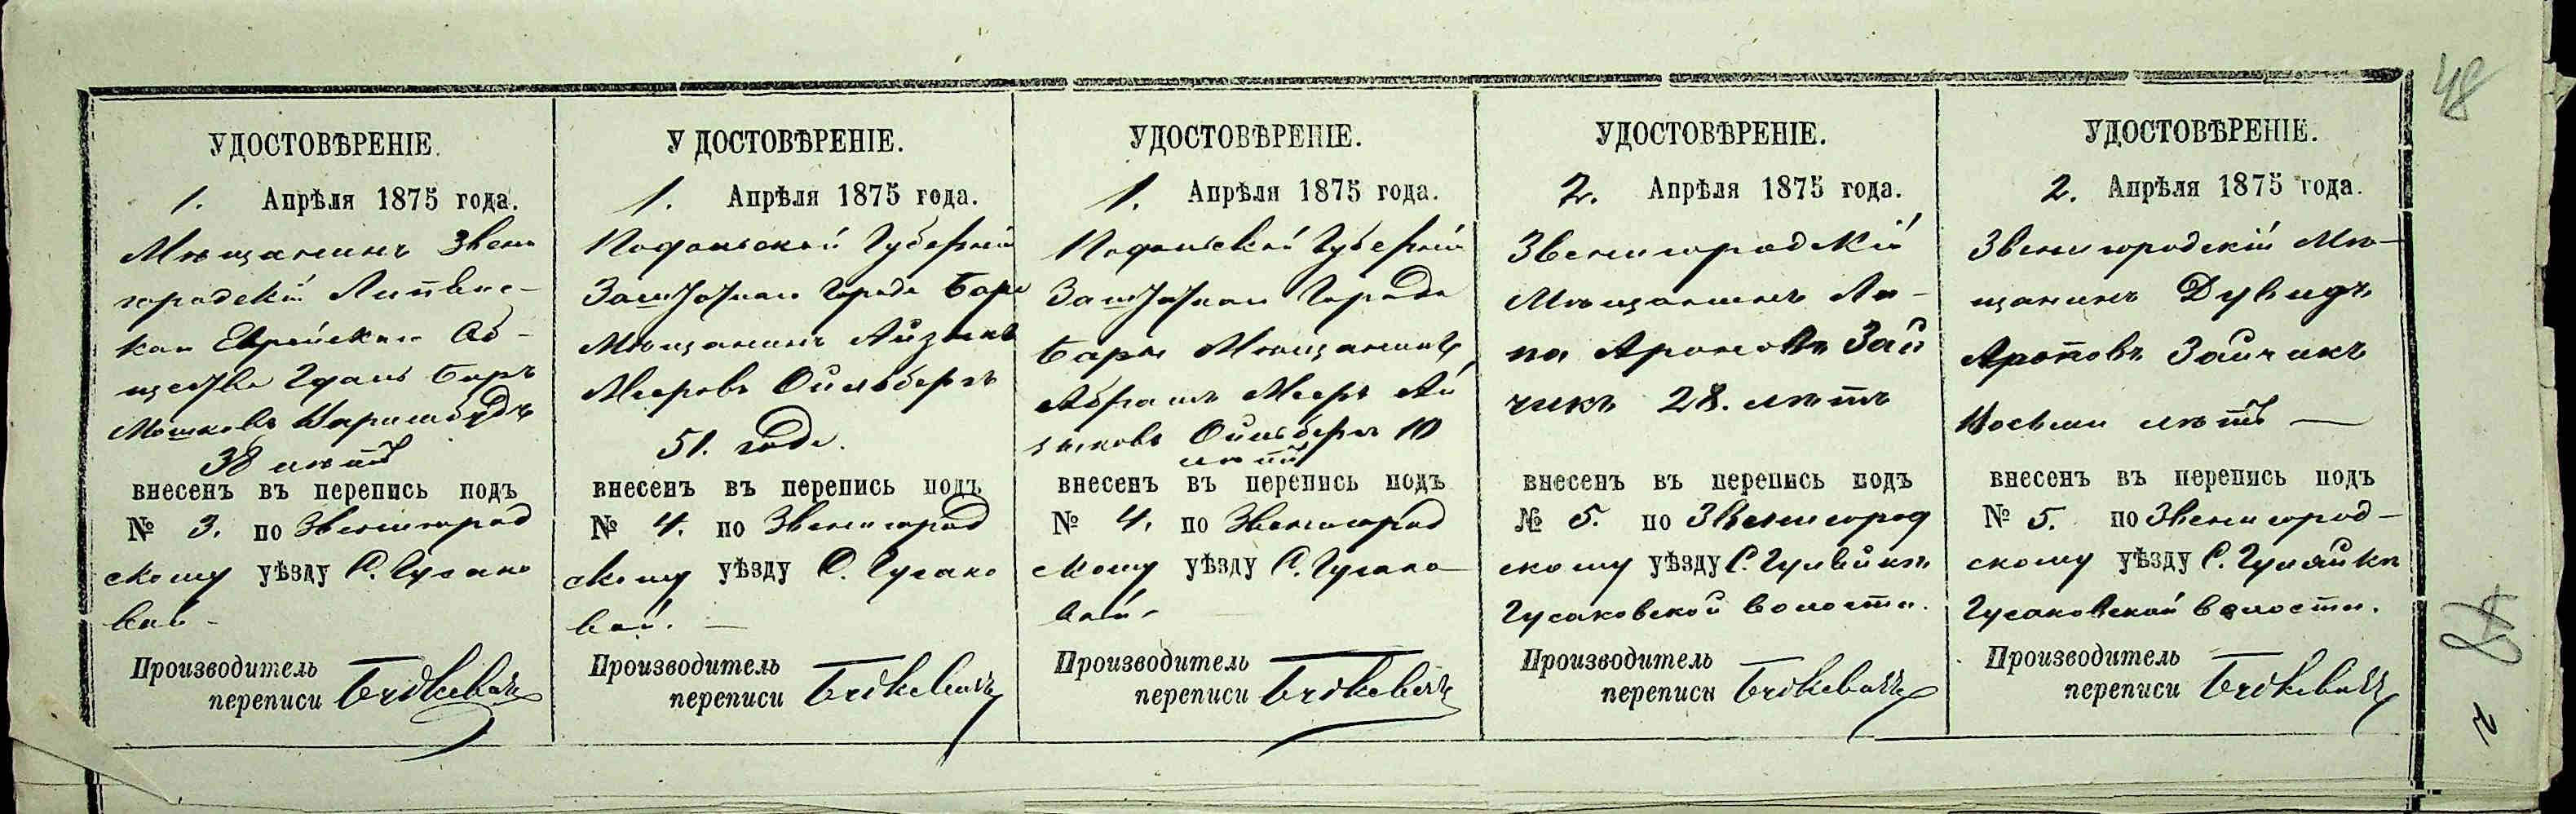 48
УДОСТОВѢРЕНІЕ.
1. Апрѣля 1875 года.
Мѣщанинъ Звени
городскій
кои Еврейскаго Об-
щества
Мошковъ
38 лѣтъ
внесенъ въ перепись подъ
№ 3. по Звенигород
скому уѣзду С. Гусако
вой -
Производитель
переписи
УДОСТОВѢРЕНІЕ.
1. Апрѣля 1875 года.
Подольской Губерніи
Заштатнаго Города Бара
Мѣщанинъ Айзикъ
Мееровъ Ойльбергъ
51. года.
внесенъ въ перепись подъ
№ 4. по Звенигород
скому уѣзду С. Гусако
вой. —
Производитель
переписи
УДОСТОВѢРЕНІЕ.
1. Апрѣля 1875 года.
Подольской Губерніи
Заштатнаго Города
Бара Мѣщанинъ
Абрамъ Мееръ Ай
зиковъ Ойльбергъ 10
лѣтъ
внесенъ въ перепись подъ
№ 4. по Звенигород
скому уѣзду С. Гусако
вой.
Производитель
переписи
УДОСТОВѢРЕНІЕ.
2. Апрѣля 1875 года.
Звенигородскій
Мѣщанинъ
Ароновъ Зай
чикъ 28. лѣтъ
внесенъ въ перепись подъ
№ 5. по Звенигород
скому уѣзду С. Гуляйки
Гусаковской волости.
Производитель
переписи
УДОСТОВѢРЕНІЕ.
2. Апрѣля 1875 года.
Звенигородскій Мѣ-
щанинъ Дувидъ
Ароновъ Зайчикъ
Восьми лѣтъ —
внесенъ въ перепись подъ
№ 5. по Звенигород-
скому уѣзду С. Гуляйки
Гусаковской волости.
Производитель
переписи